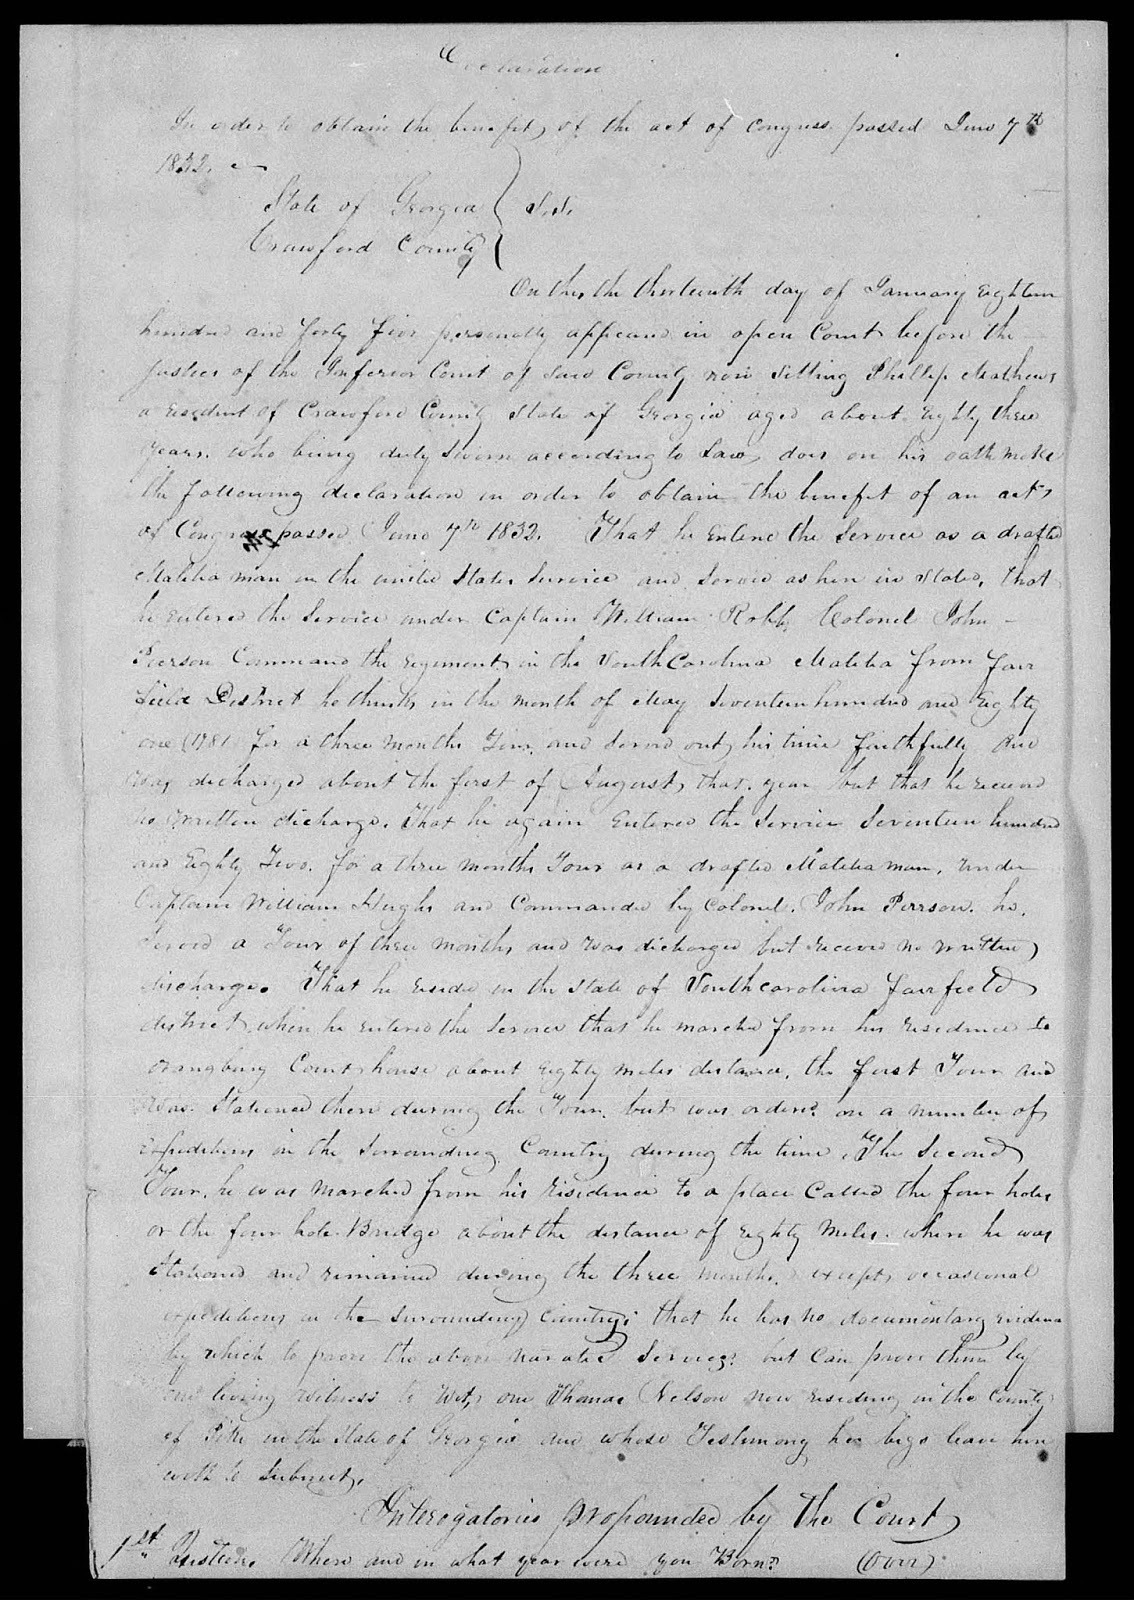 Declaration
In order to obtain the benefit of the act of Congress passed June 7th
1832.
State of Georgia } S.S.
Crawford County
On this the thirteenth day of January Eighteen
hundred and forty five personally appeared in open Court before the
Justices of the Inferior Court of said County now sitting Phillip Mathews
a resident of Crawford County State of Georgia aged about Eighty three
years. who being duly Sworn according to Law, does on his oath make
the following declaration in order to obtain the benefit of an act
of Congress passed June 7th 1832. That he Entered the Service as a drafted
Malitia man in the united States Service and Served as here in stated, that
he Entered the Service under Captain William Robb, Colonel John
Pierson Command the regiment in the South Carolina Malitia from Fair
field District he thinks in the month of May Seventeen hundred and Eighty
one (1781) for a three months Tour, and Served out his time faithfully and
was discharged about the first of August, that year but that he received
no written discharge. That he again Entered the Service Seventeen hundred
and Eighty Two. for a three months Tour as a drafted Malitia man, under
Captain William Hughs and Commanded by Colonel. John Pierson. he.
Served a Tour of three months and was discharged but received no written
discharge. That he resided in the State of South carolina fairfield
district, when he entered the Service that he marched from his residence to
orangburg Court house about Eighty miles distance, the first Tour and
was Stationed there during the Tour. but was ordered on a number of
Expeditions in the Surrounding Country during the time. The Second
Tour, he was marched from his residence to a place Called the four holes
or the four hole Bridge about the distance of Eighty miles. where he was
Stationed and remained during the three months. except occasional
expeditions in the Surrounding Country: that he has no documentary evidence
by which to prove the above narrated Services: but can prove them by
one living witness to Wit, one Thomas Nelson now residing in the County
of Pike in the State of Georgia and whose Testimony he begs leave here
with to Submit.
Interogatories propounded by the Court
1st Question. Where and in what year were you Born? (over)